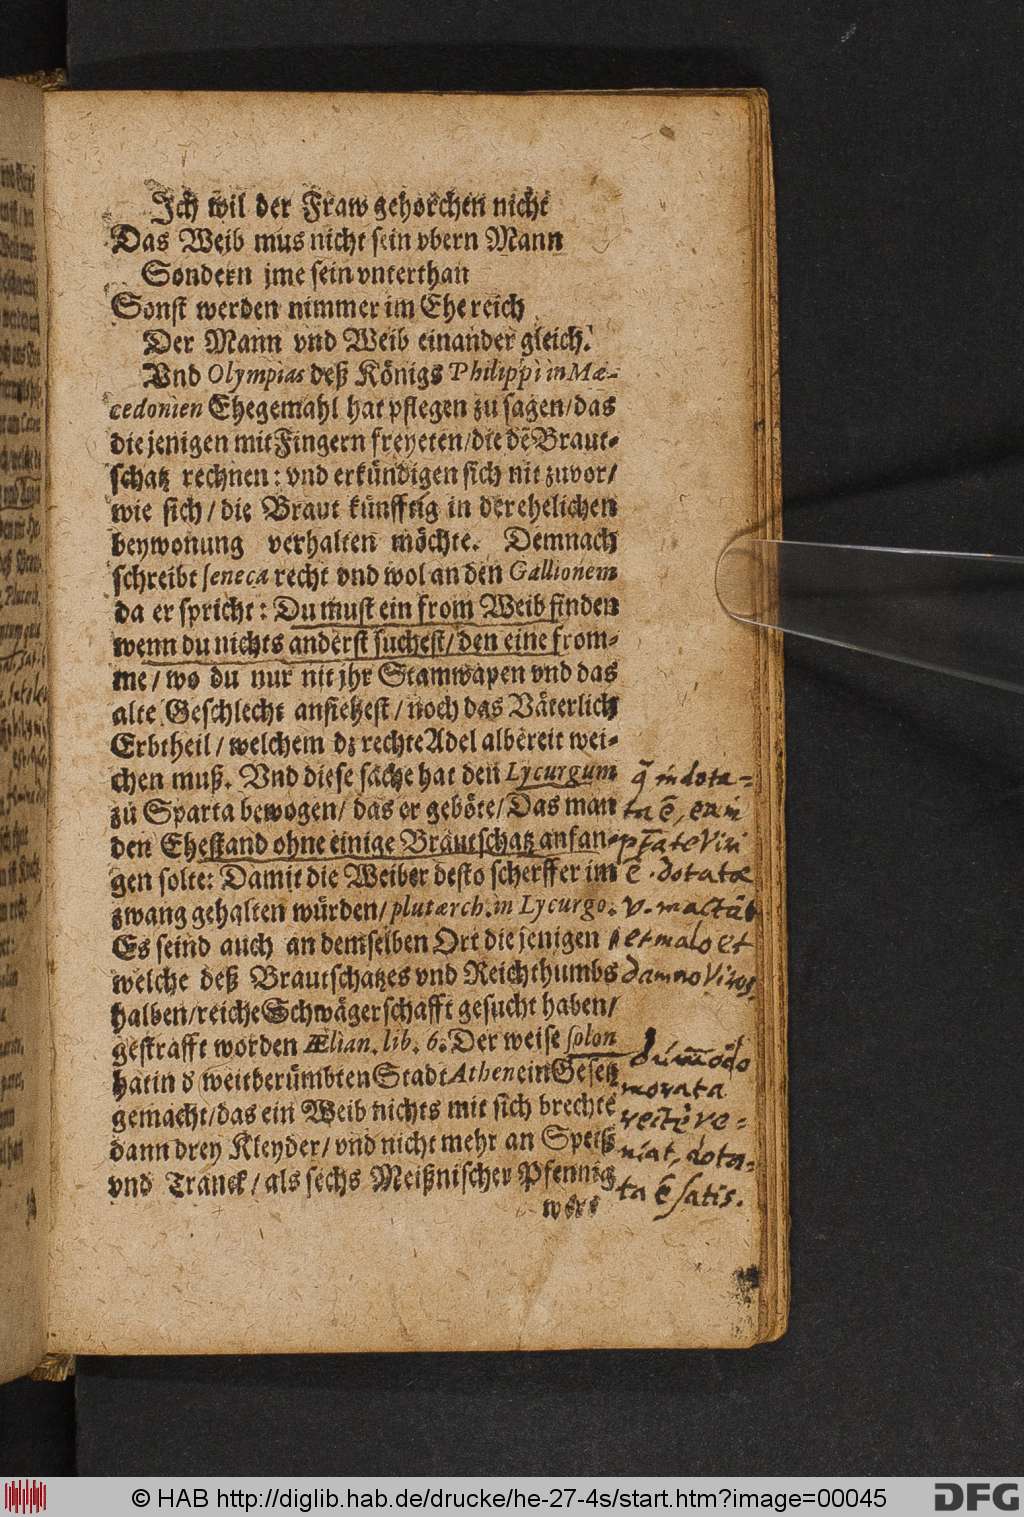 Ich wil der Fraw gehorchen nicht
Das Weib mus nicht sein vbern Mann
Sondern jme sein vnterthan
Sonst werden nimmer im Ehe reich
Der Mann vnd Weib einander gleich.
Vnd Olympias deß Königs Philippi in Ma-
cedonien Ehegemahl hat pflegen zu sagen/das
die jenigen mit Fingern freyeten/die dē Braut-
schatz rechnen: vnd erkündigen sich nit zuvor/
wie sich/die Braut künfftig in der ehelichen
beywonung verhalten möchte. Demnach
schreibt seneca recht vnd wol an den Gallionem
da er spricht: Du must ein from Weib finden
wenn du nichts anderst suchest/den eine from-
me/wo du nur nit jhr Stamwapen vnd das
alte Geschlecht ansiehest/noch das Väterlich
Erbtheil/welchem dz rechte Adel albereit wei-
chen muß. Vnd diese sache hat den Lycurgum
zu Sparta bewogen/das er geböte/Das man
den Ehestand ohne einige Brautschatz anfan-
gen solte: Damit die Weiber desto scherffer im
zwang gehalten würden/plutarch.in Lycurgo.
Es seind auch an demselben Ort die jenigen
welche deß Brautschatzes vnd Reichthumbs
halben/reiche Schwägerschafft gesucht haben/
gestrafft worden Ælian.lib.6.Der weise solon
hat in d weitberümbten Stadt Athen ein Gesetz
gemacht/das ein Weib nichts mit sich brechte
dann drey Kleyder/vnd nicht mehr an Speiß
vnd Tranck/als sechs Meißnischer Pfennig
q̃ indota-
ta ē, ea in
p̄tate Viri
ē. dotatæ
v. mactāt
et malo et
damno Viros.
dum̄odo
morata
rectè ve-
niat, dota-
ta ē satis.
© HAB http://diglib.hab.de/drucke/he-27-4s/start.htm?image=00045
DFG